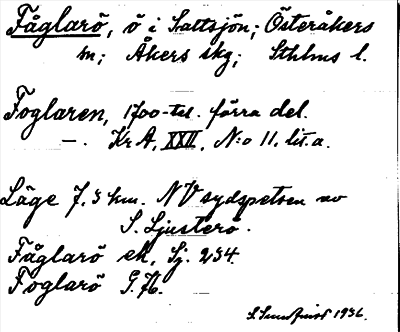 Fåglarö, ö i Saltsjön; Österåkers
sn; Åkers skg; Sthlms l.
Foglaren, 1700-tal. förra del.
—. Kr A. XXII, N:o 11. lit. a.
Läge 7,5 km. NV sydspetsen av
S. Ljusterö.
Fåglarö ek. Sj. 234.
Foglarö G.A.
S. Sundquist 1936.